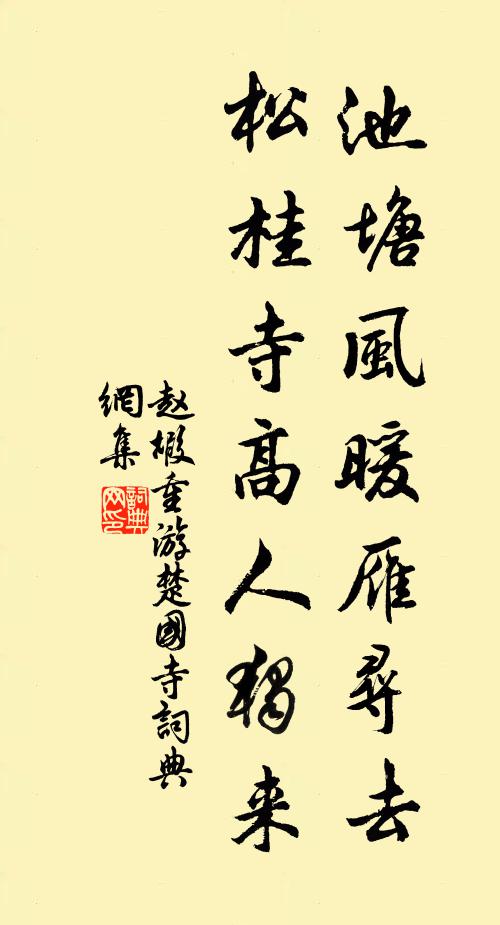 池塘風暖雁尋去
松桂寺高人獨来
赵嘏重游楚國寺詞典
網集
詞典
网印